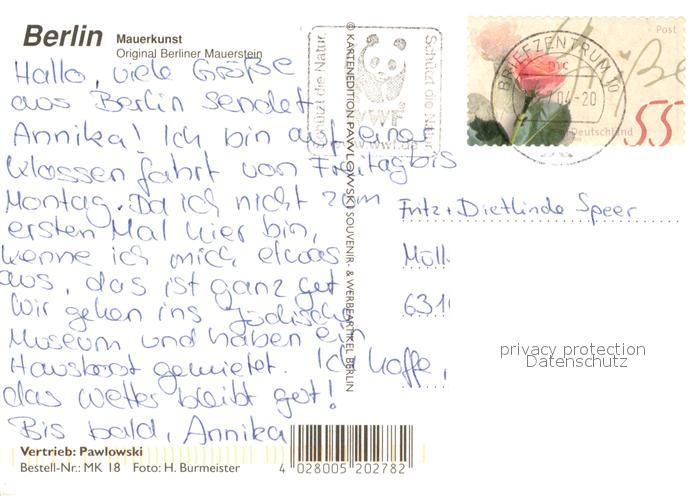 Berlin Mauerkunst
Original Berliner Mauerstein
Hallo, viele Größe
aus Berlin sendet
Annika! Ich bin auf einer
Klassenfahrt von Freitag bis
Montag. Da ich nicht zum
ersten Mal hier bin,
kenne ich mich etwas
aus, das ist ganz gut.
Wir gehen ins Jüdische
Museum und haben ein
Hausboot gemietet. Ich hoffe,
das Wetter bleibt gut!
Bis bald, Annika
Vertrieb: Pawlowski
Bestell-Nr.: MK 18 Foto: H. Burmeister
4 028005 202782
© KARTENEDITION PAWLOWSKI SOUVENIR- & WERBEARTIKEL BERLIN
Schützt die Natur
WWF
www.wwf.de
Schützt die Natur
BRIEFZENTRUM 10
04-20
Post
Deutschland
55
Fritz + Dietlinde Speer
Müll
631
privacy protection
Datenschutz